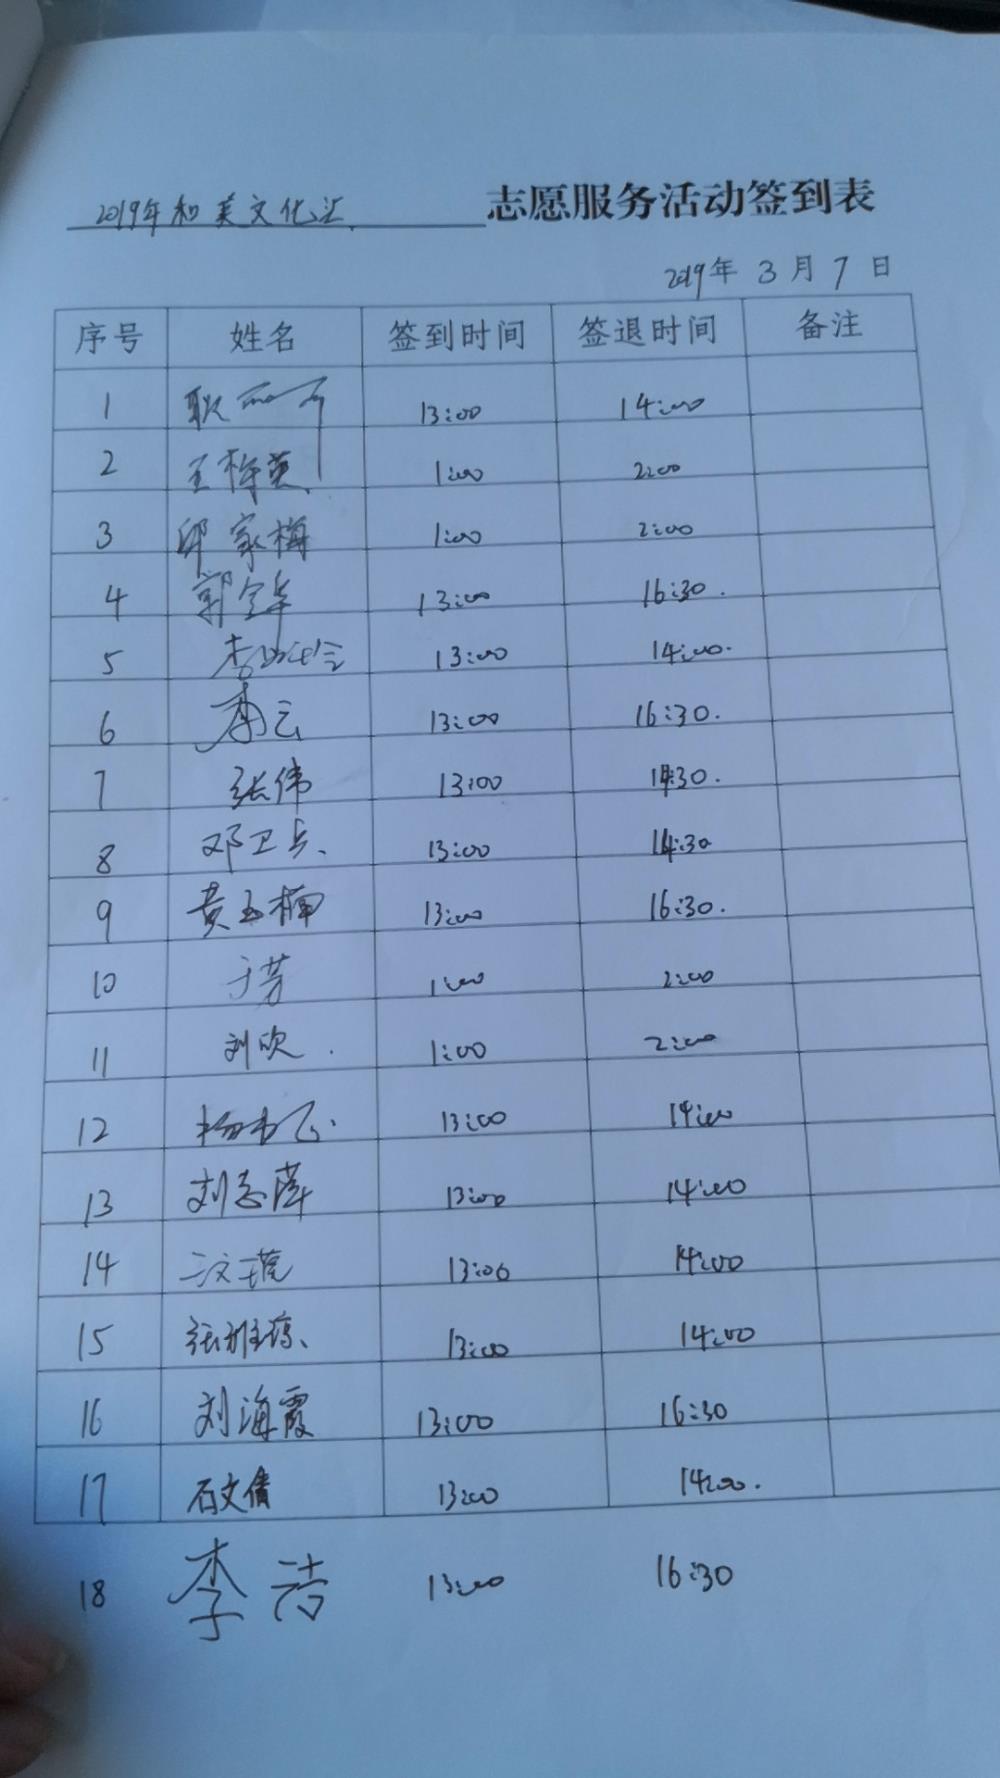 2019年和美文化汇 志愿服务活动签到表
2019年 3 月 7 日
序号 姓名 签到时间 签退时间 备注
1 13:00 14:00
2 王梅英 1:00 2:00
3 邱家梅 1:00 2:00
4 郭全华 13:00 16:30.
5 13:00 14:00.
6 云 13:00 16:30.
7 张伟 13:00 14:30.
8 邓卫兵、 13:00 14:30
9 黄玉楠 13:00 16:30.
10 于芳 1:00 2:00
11 刘欣. 1:00 2:00
12 13:00 14:00
13 刘志萍 13:00 14:00
14 13:00 14:00
15 张雅琼、 13:00 14:00
16 刘海霞 13:00 16:30
17 石文倩 13:00 14:00.
18 李洁 13:00 16:30